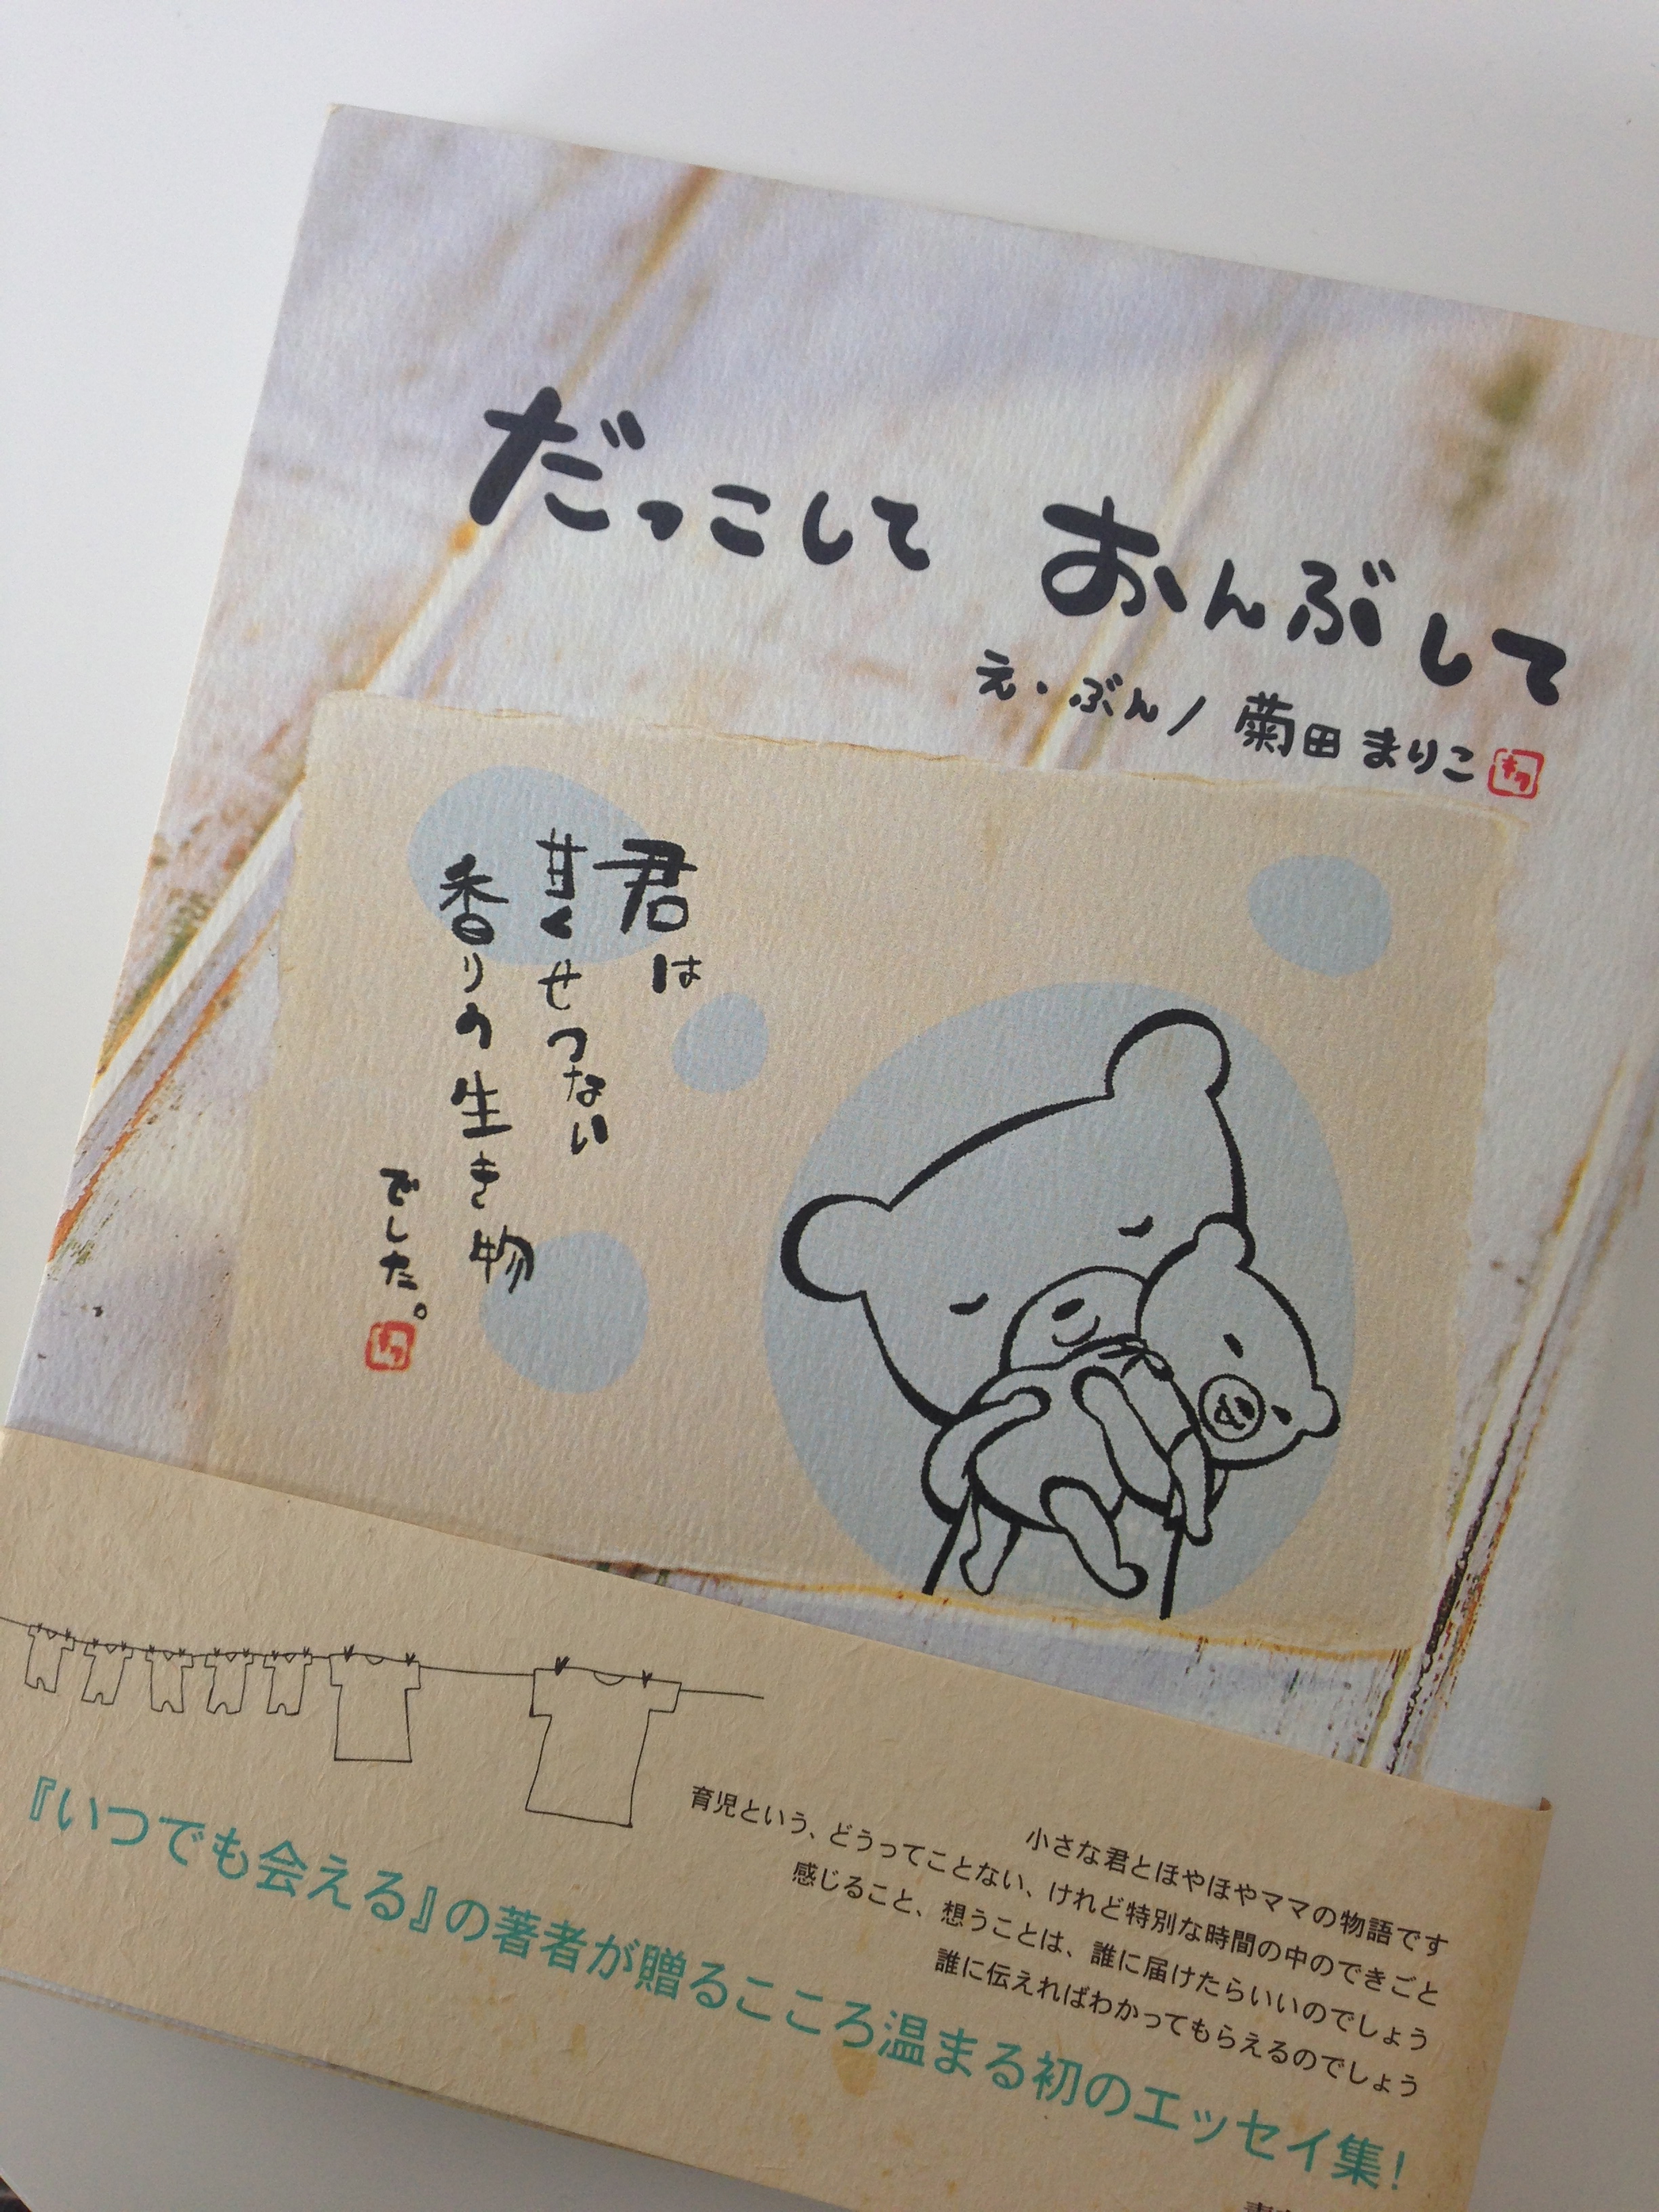 だっこして おんぶして
え・ぶん/菊田まりこ
君は
甘くせつない
香りの生き物
でした。
小さな君とほやほやママの物語です
育児という、どうってことない、けれど特別な時間の中のできごと
感じること、想うことは、誰に届けたらいいのでしょう
誰に伝えればわかってもらえるのでしょう
『いつでも会える』の著者が贈るこころ温まる初のエッセイ集!